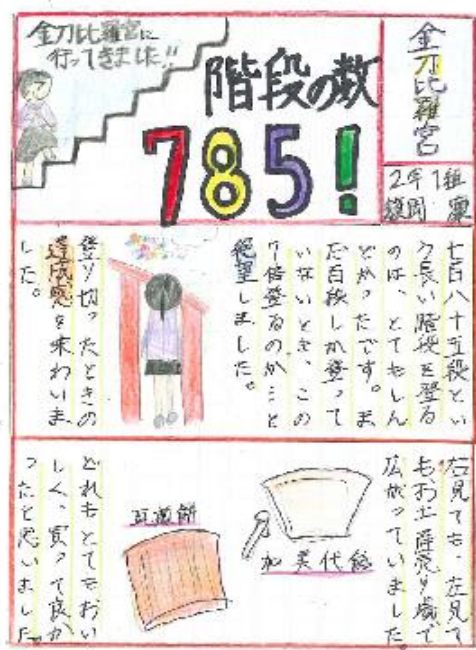 金刀比羅宮
2年1組
金刀比羅宮に
行ってきました!!
階段の数
785!
七百八十五段とい
う長い階段を登る
のは、とてもしん
どかったです。ま
だ百段しか登って
いないとき、この
7倍登るのか…と
絶望しました。
登り切ったときの
達成感を味わいま
した。
右見ても、左見て
もお土産売り場で
広がっていました。
加美代飴
瓦煎餅
どれもとてもおい
しく、買って良か
ったと思いました。